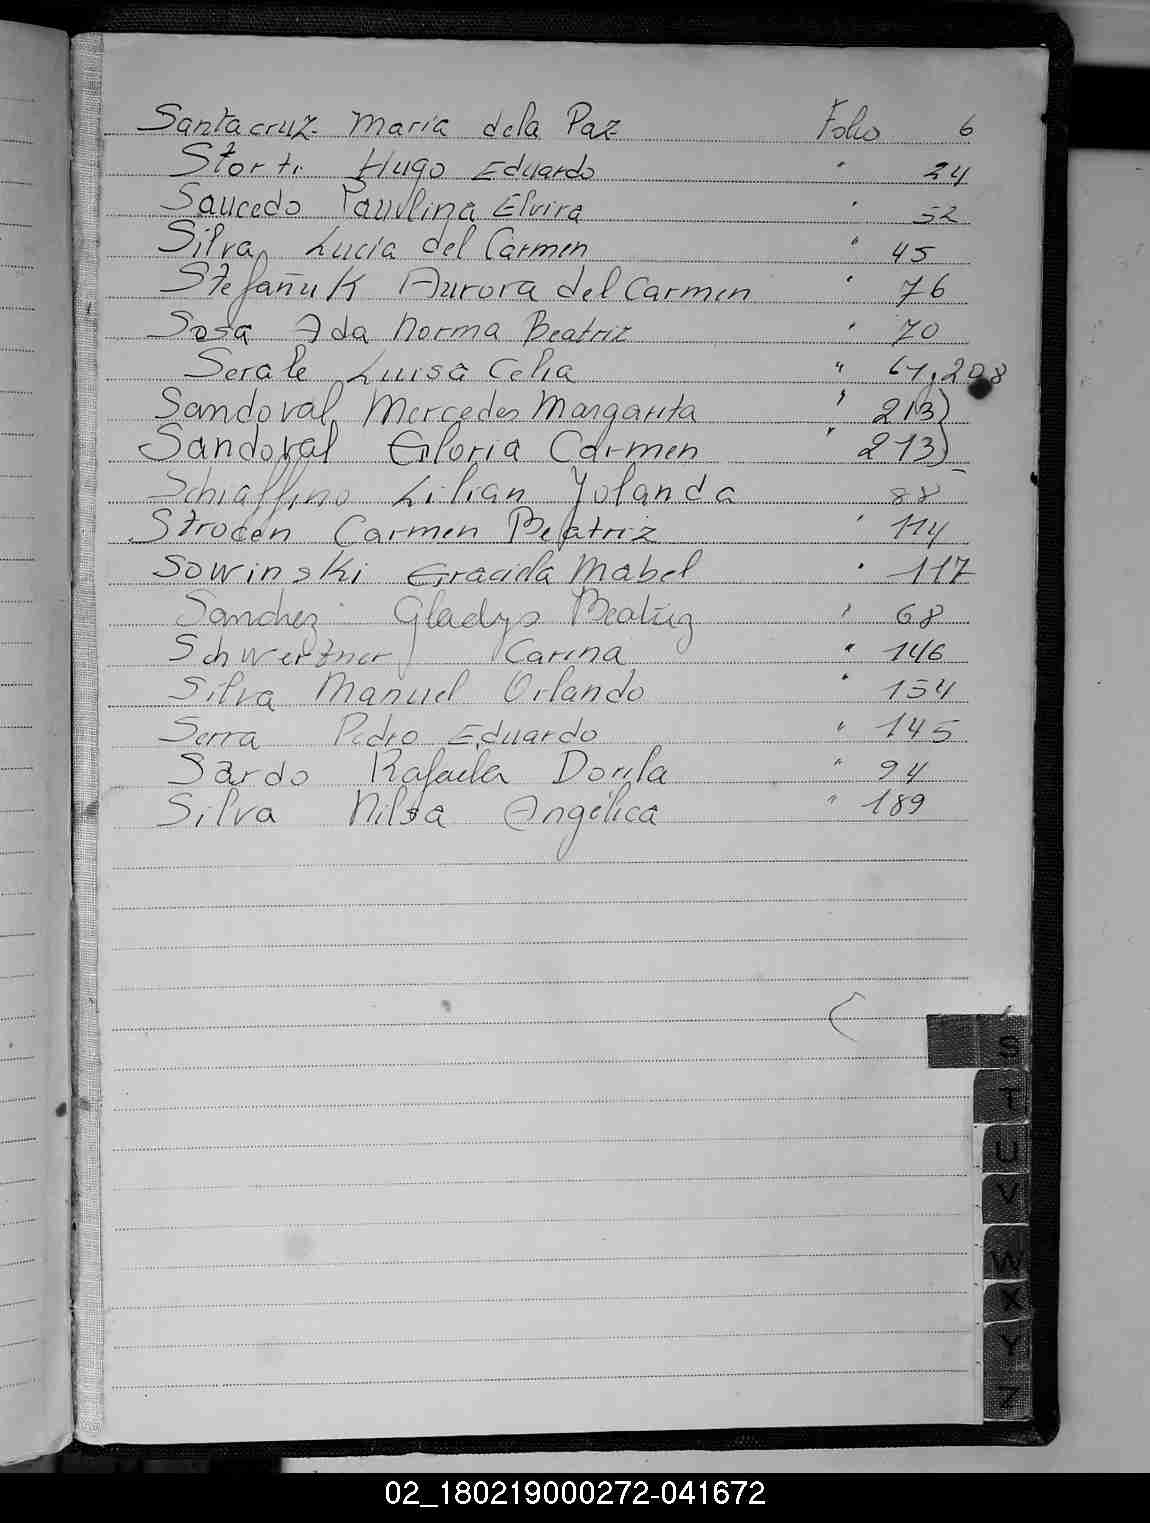 Santacruz Maria dela Paz Folio 6
Storti Hugo Eduardo " 24
Saucedo Paulina Elvira " 52
Silva Lucia del Carmen " 45
Stefañuk Aurora del Carmen " 76
Sosa Ada Norma Beatriz " 70
Serale Luisa Celia " 67,208
Sandoval Mercedes Margarita " 213)
Sandoval Gloria Carmen " 213)
Schiaffino Lilian Yolanda 88
Strocen Carmen Beatriz " 114
Sowinski Graciela Mabel " 117
Sanchez Gladys Beatriz " 68
Schwertner Carina " 146
Silva Manuel Orlando " 154
Serra Pedro Eduardo " 145
Sardo Rafaela Dorila " 94
Silva Nilsa Angélica " 189
S
T
U
V
W
X
Y
Z
02_180219000272-041672